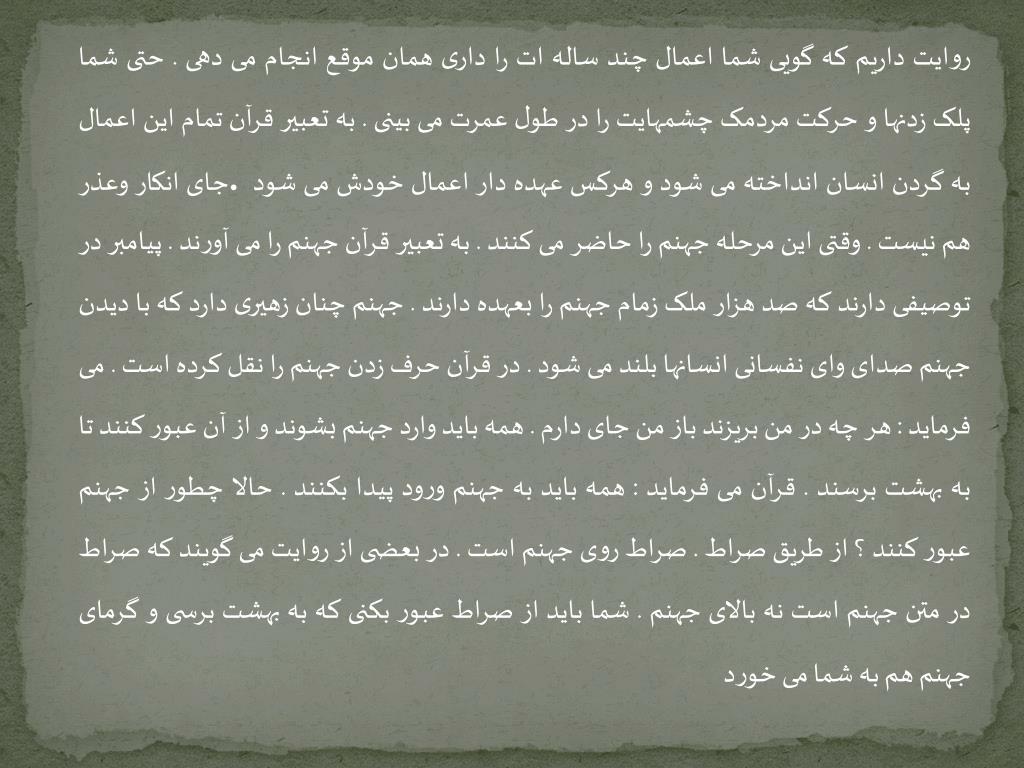 روایت داریم که گویی شما اعمال چند ساله ات را داری همان موقع انجام می دهی . حتی شما
پلک زدنها و حرکت مردمک چشمهایت را در طول عمرت می بینی . به تعبیر قرآن تمام این اعمال
به گردن انسان انداخته می شود و هرکس عهده دار اعمال خودش می شود .جای انکار وعذر
هم نیست . وقتی این مرحله جهنم را حاضر می کنند . به تعبیر قرآن جهنم را می آورند . پیامبر در
توصیفی دارند که صد هزار ملک زمام جهنم را بعهده دارند . جهنم چنان زهیری دارد که با دیدن
جهنم صدای وای نفسانی انسانها بلند می شود . در قرآن حرف زدن جهنم را نقل کرده است . می
فرماید : هر چه در من بریزند باز من جای دارم . همه باید وارد جهنم بشوند و از آن عبور کنند تا
به بهشت برسند . قرآن می فرماید : همه باید به جهنم ورود پیدا بکنند . حالا چطور از جهنم
عبور کنند ؟ از طریق صراط . صراط روی جهنم است . در بعضی از روایت می گویند که صراط
در متن جهنم است نه بالای جهنم . شما باید از صراط عبور بکنی که به بهشت برسی و گرمای
جهنم هم به شما می خورد